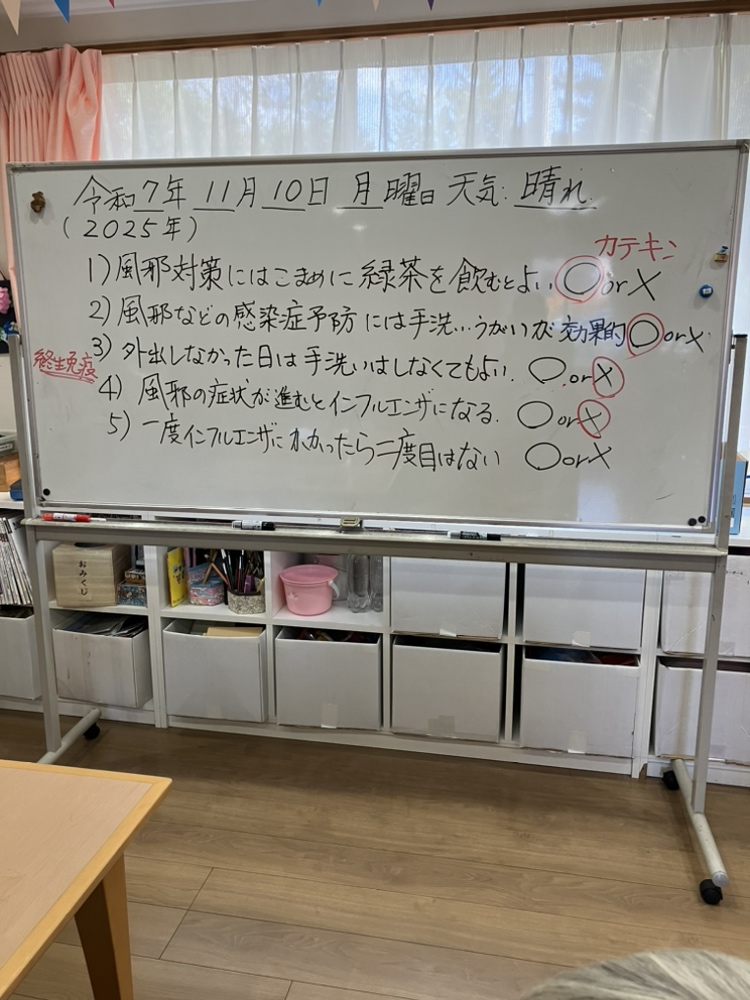 令和7年 11月 10日 月曜日 天気: 晴れ
(2025年)
カテキン
1) 風邪対策にはこまめに緑茶を飲むとよい ○or×
2) 風邪などの感染症予防には手洗い・うがいが効果的 ○or×
3) 外出しなかった日は手洗いはしなくてもよい. ○or×
終生免疫
4) 風邪の症状が進むとインフルエンザになる. ○or×
5) 一度インフルエンザにかかったら二度目はない ○or×
おみくじ